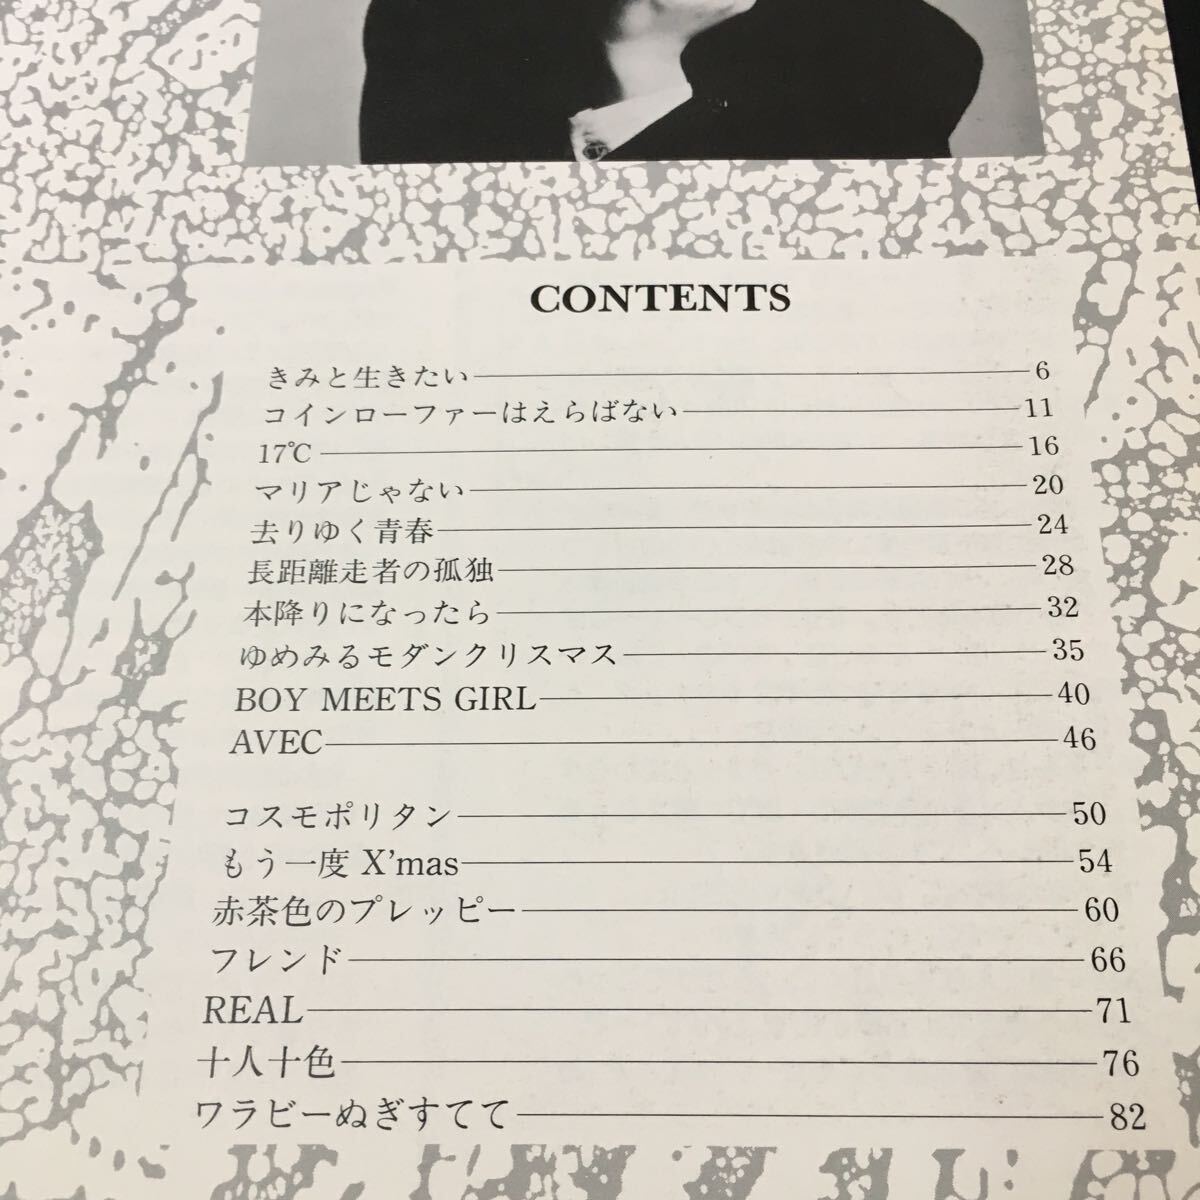 CONTENTS
きみと生きたい 6
コインローファーはえらばない 11
17℃ 16
マリアじゃない 20
去りゆく青春 24
長距離走者の孤独 28
本降りになったら 32
ゆめみるモダンクリスマス 35
BOY MEETS GIRL 40
AVEC 46
コスモポリタン 50
もう一度 X'mas 54
赤茶色のプレッピー 60
フレンド 66
REAL 71
十人十色 76
ワラビーぬぎすてて 82